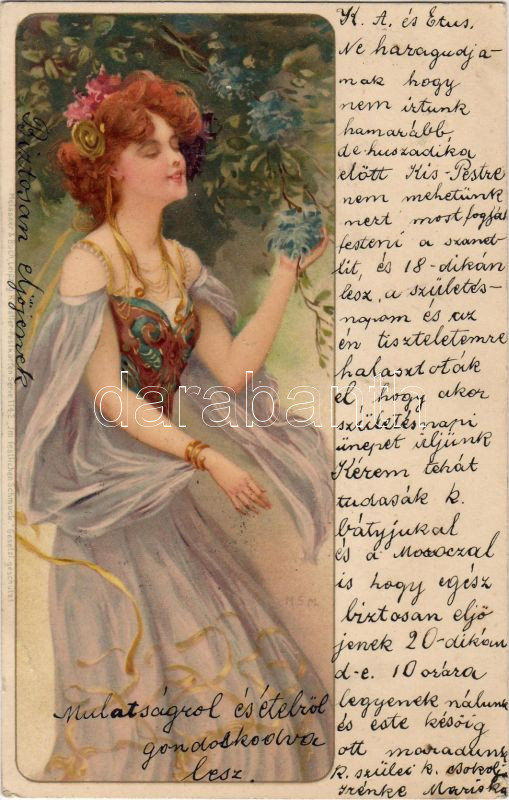 K. A. és Etus.
Ne haragudja-
nak hogy
nem irtunk
hamarább,
de huszadika
előtt Kis-Pestre
nem mehetünk
mert most fogják
festeni a
és 18-dikán
lesz, a születés-
napom és az
én tiszteletemre
halasztották
el, hogy akor
születésnapi
ünepet üljünk
Kérem tehát
tudasák k.
bátyjukal
és a Mosoczal
is hogy egész
biztosan eljö
jenek 20-dikán
d-e. 10 orára
legyenek nálunk
és este későig
ott maradunk
k. szülei k. csokolja
Irénke Mariska
Biztosan eljöjenek
Mulatságrol és ételröl
gondoskodva
lesz.
M.S.M.
Meissner & Buch, Leipzig Künstler-Postkarten Serie 1143 „Im festlichen Schmuck“ Gesetzl. geschützt
darabanth